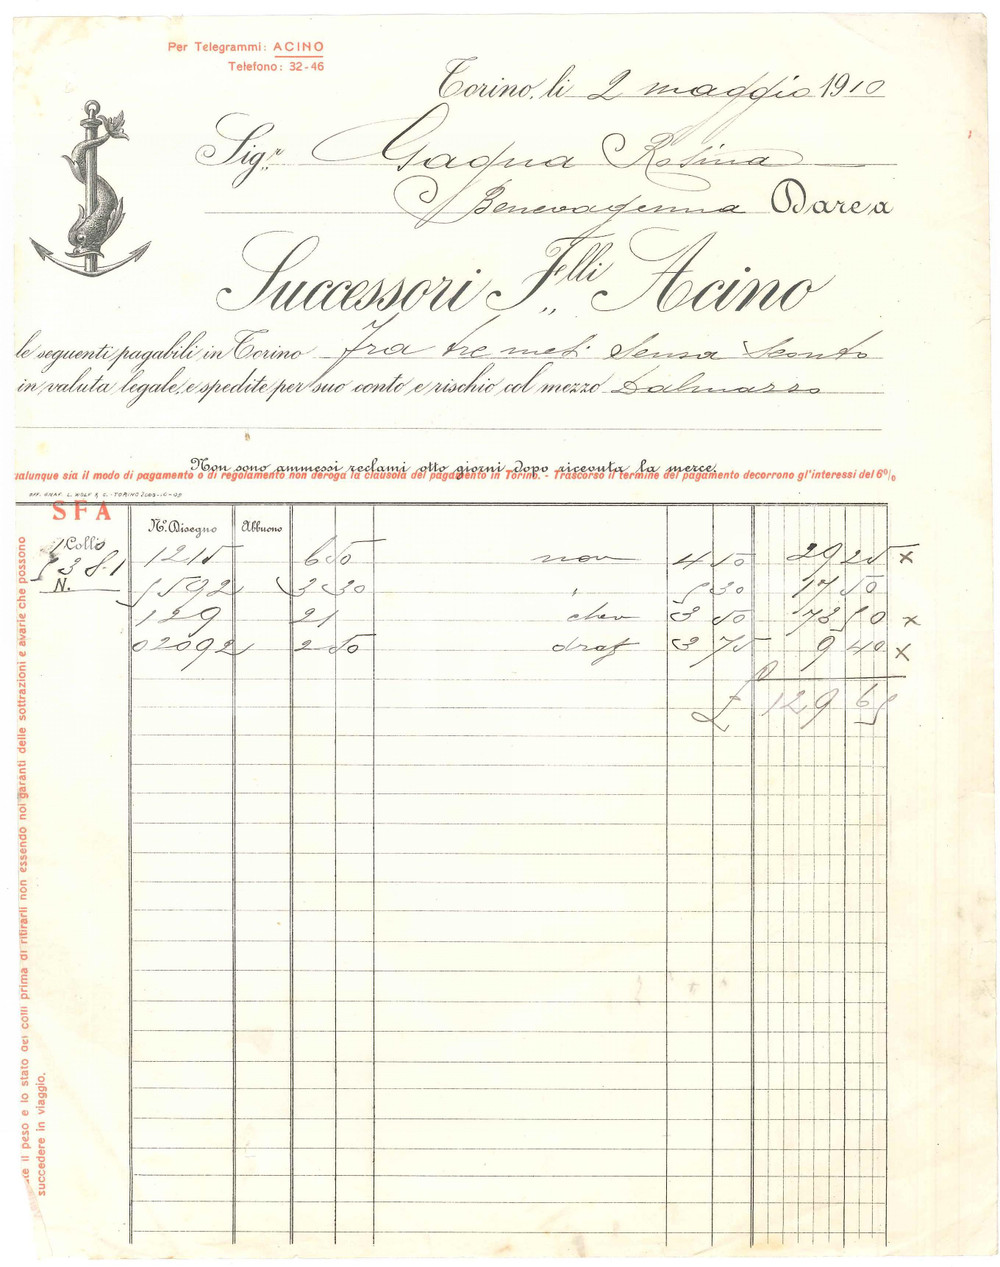 Per Telegrammi: ACINO
Telefono: 32-46
Torino, li 2 maggio 1910
Sig.r Gagna Rosina
Benevagenna Dare a
Successori F.lli Acino
le seguenti pagabili in Torino Fra tre mesi Senza Sconto
in valuta legale, e spedite per suo conto e rischio col mezzo Dalmazzo
Non sono ammessi reclami otto giorni dopo ricevuta la merce.
ualunque sia il modo di pagamento o di regolamento non deroga la clausola del pagamento in Torino. - Trascorso il termine del pagamento decorrono gl'interessi del 6%
SFA
N.º Disegno Abbuono
1 Collo
5381
N.
1215 6 50 nov 4 50 29 25 x
5592 3 30 5 30 17 50
129 21 chev 3 50 73 50 x
02092 2 50 draf 3 75 9 40 x
£ 129 65
te il peso e lo stato dei colli prima di ritirarli non essendo noi garanti delle sottrazioni e avarie che possono
succedere in viaggio.